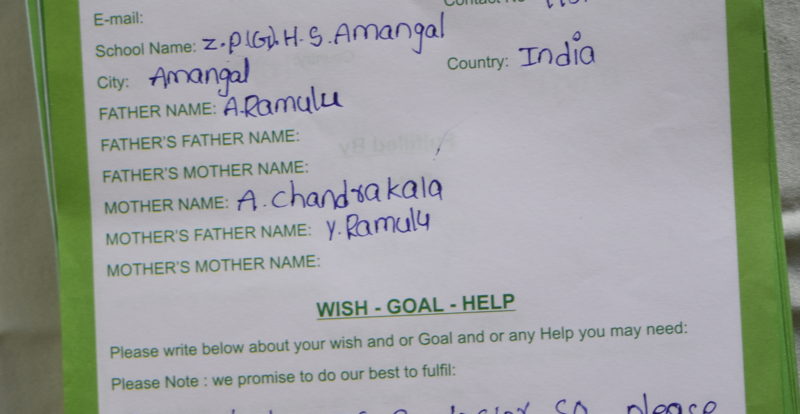 E-mail:
School Name: Z.P(G).H.S. Amangal
City: Amangal Country: India
FATHER NAME: A.Ramulu
FATHER'S FATHER NAME:
FATHER'S MOTHER NAME:
MOTHER NAME: A. Chandrakala
MOTHER'S FATHER NAME: Y. Ramulu
MOTHER'S MOTHER NAME:
WISH - GOAL - HELP
Please write below about your wish and or Goal and or any Help you may need:
Please Note : we promise to do our best to fulfil:
so please